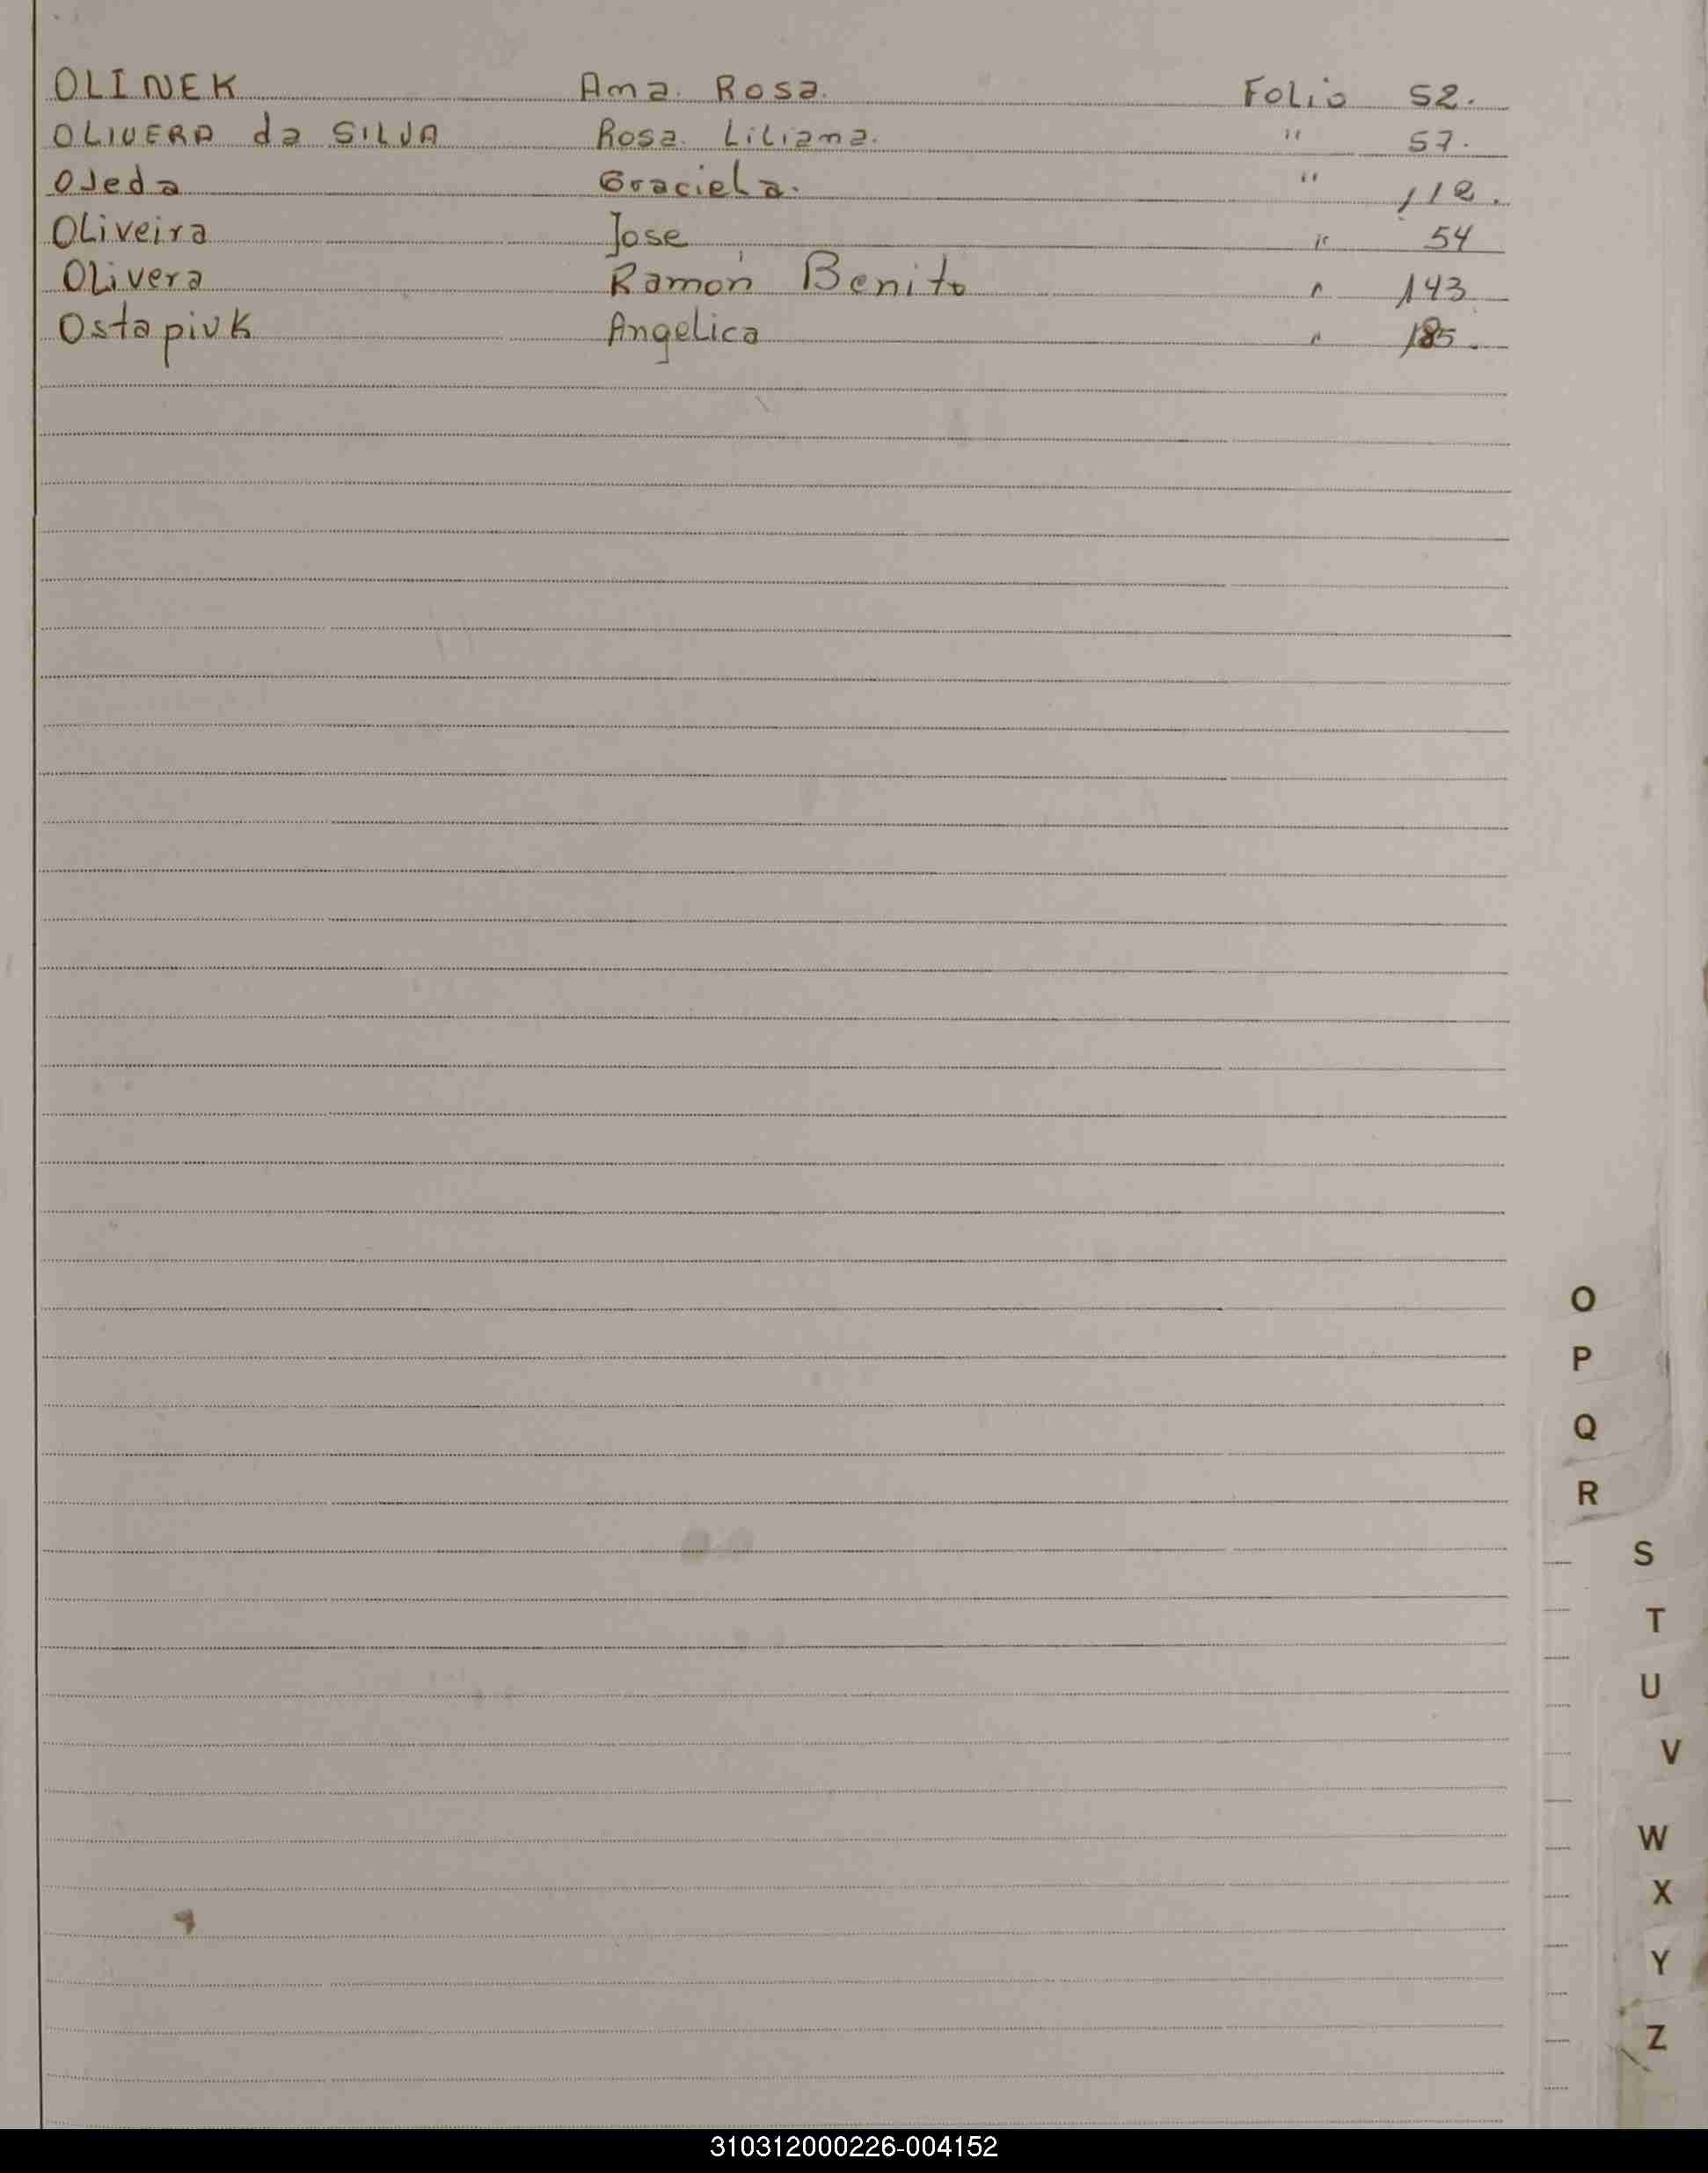 OLINEK Ana Rosa. Folio 52.
OLIVERA da SILVA Rosa Liliana. " 57.
OJeda Graciela. " 112.
Oliveira Jose " 54
Olivera Ramón Benito " 143
Ostapiuk Angelica " 185.
O
P
Q
R
S
T
U
V
W
X
Y
Z
310312000226-004152